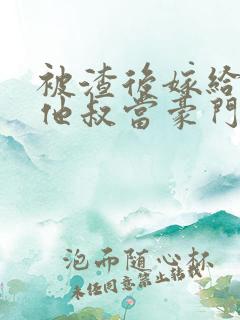 被渣后嫁給
他叔當豪門
泡而随心杯
未经同意禁止转载